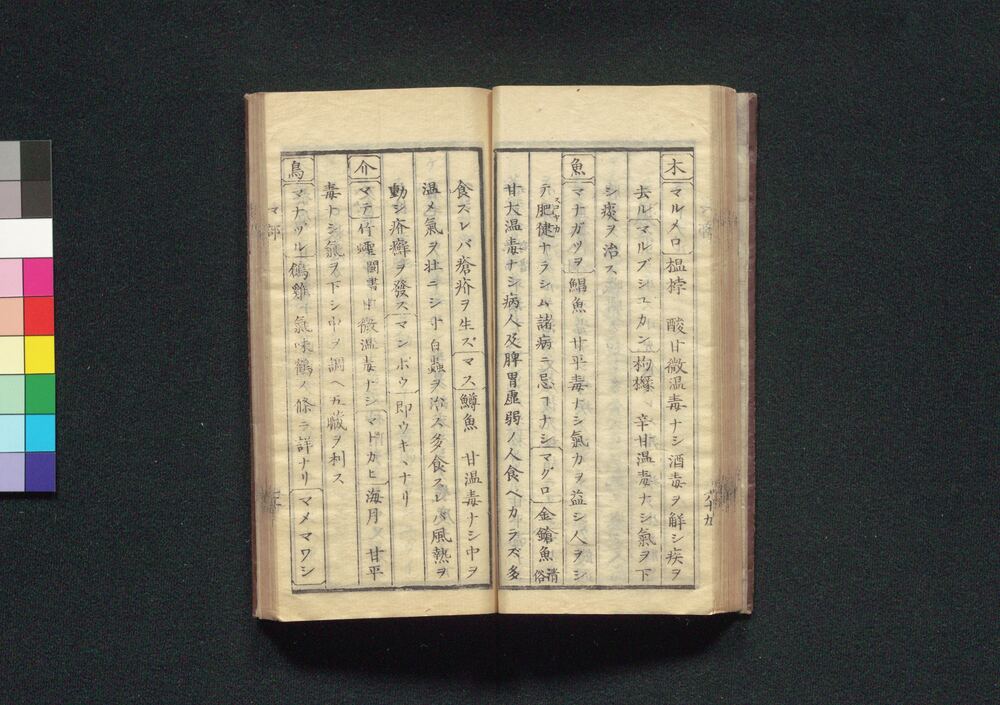 木 マルメロ 榲桲 酸甘微温毒ナシ酒毒ヲ解シ疾ヲ
去ル マルブシュカン 枸櫞 辛甘温毒ナシ氣ヲ下
シ痰ヲ治ス
魚 マナガツヲ 鯧魚 甘平毒ナシ氣力ヲ益シ人ヲシ
テ肥健ナラシム諸病ニ忌ヿナシ マグロ 金鎗魚 清俗
甘大温毒ナシ病人及脾胃虚弱ノ人食ベカラズ多
食スレバ瘡疥ヲ生ズ マス 鱒魚 甘温毒ナシ中ヲ
温メ氣ヲ壮ニシ寸白蟲ヲ治ス多食スレバ風熱ヲ
動シ疥癬ヲ發ス マンボウ 即ウキヽナリ
介 マテ 竹蟶 閩書 甘微温毒ナシ マドカヒ 海月 甘平
毒ナシ氣ヲ下シ中ヲ調ヘ五臓ヲ利ス
鳥 マナヅル 鶬雞 氣味鶴ノ條ニ詳ナリ マメマワシ
マ部
六十九